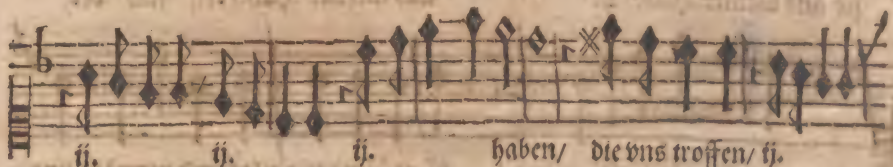 ij. ij. ij. haben/ die vns troffen/ ij.